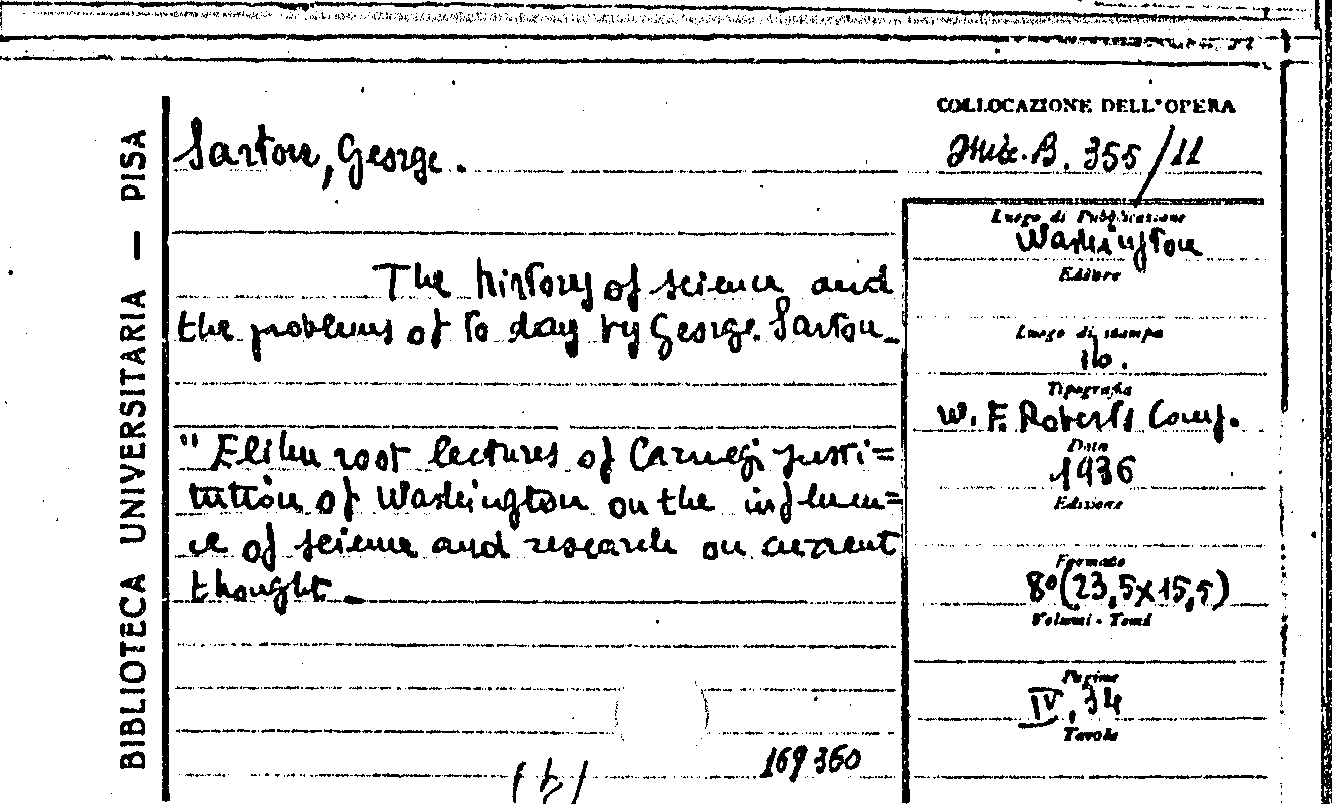 BIBLIOTECA UNIVERSITARIA — PISA
COLLOCAZIONE DELL'OPERA
B. 355/11
Sarton, George.
The history of science and
the problems of to day by George Sarton_
"Elihu root lectures of Carnegi insti=
tution of Washington on the influen=
ce of science and research on current
thought_
169360
(b)
Luogo di Pubblicazione
Washington
Editore
Luogo di stampa
Tipografia
W. F. Roberts Comp.
Data
1936
Edizione
Formato
8º(23,5x15,5)
Volumi - Tomi
Pagine
IV, 34
Tavole